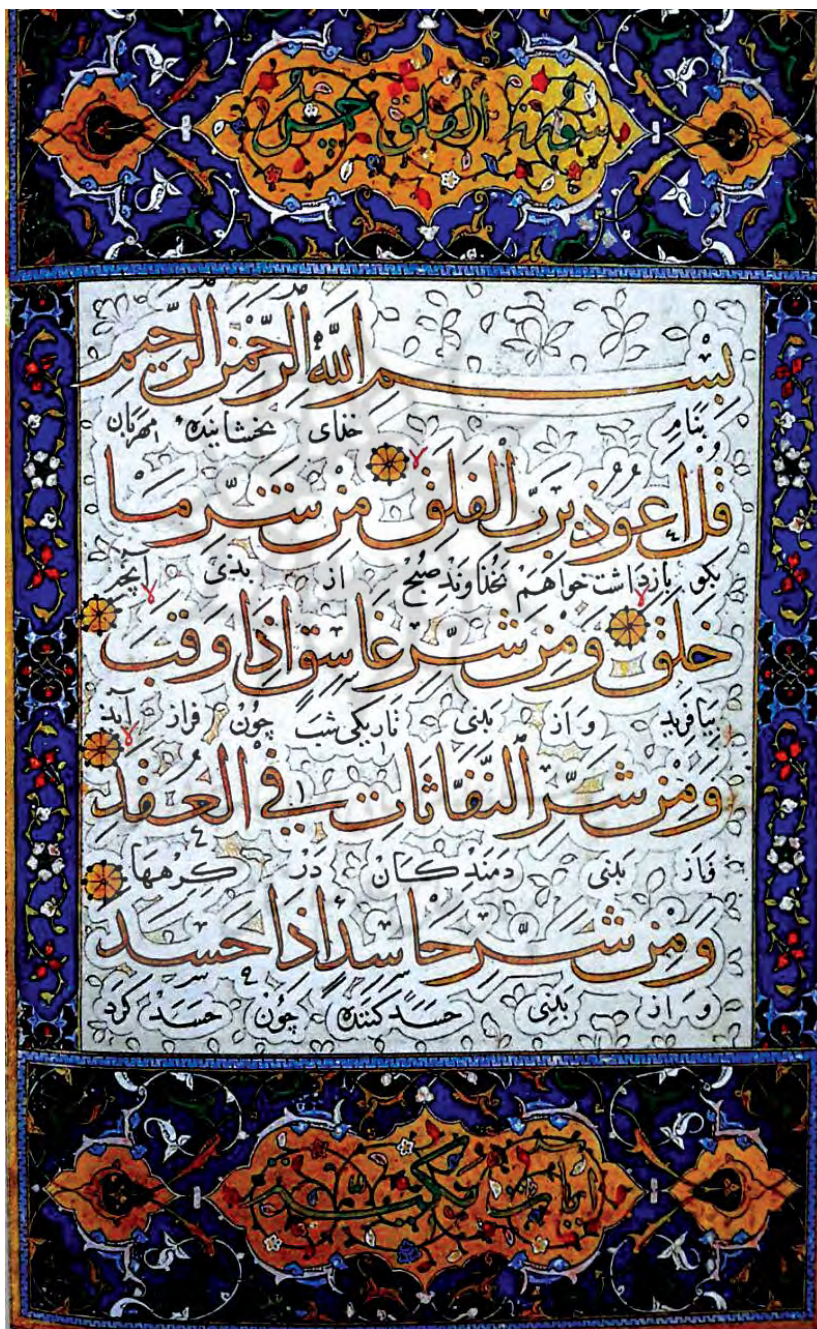 سورة الفلق خمس
بِسْمِ اللَّهِ الرَّحْمَٰنِ الرَّحِيمِ
بنام خدای بخشاینده مهربان
قُلْ أَعُوذُ بِرَبِّ الْفَلَقِ لا مِنْ شَرِّ مَا
بکو بازداشت خواهم بخداوند صبح از بدی آنچه
لا
خَلَقَ لا وَمِنْ شَرِّ غَاسِقٍ إِذَا وَقَبَ
بیافرید و از بدی تاریکی شب چون فراز آید
لا
وَمِنْ شَرِّ النَّفَّاثَاتِ فِي الْعُقَدِ
و از بدی دمندکان در کرهها
وَمِنْ شَرِّ حَاسِدٍ إِذَا حَسَدَ
و از بدی حسد کننده چون حسد کرد
آیات مکیة